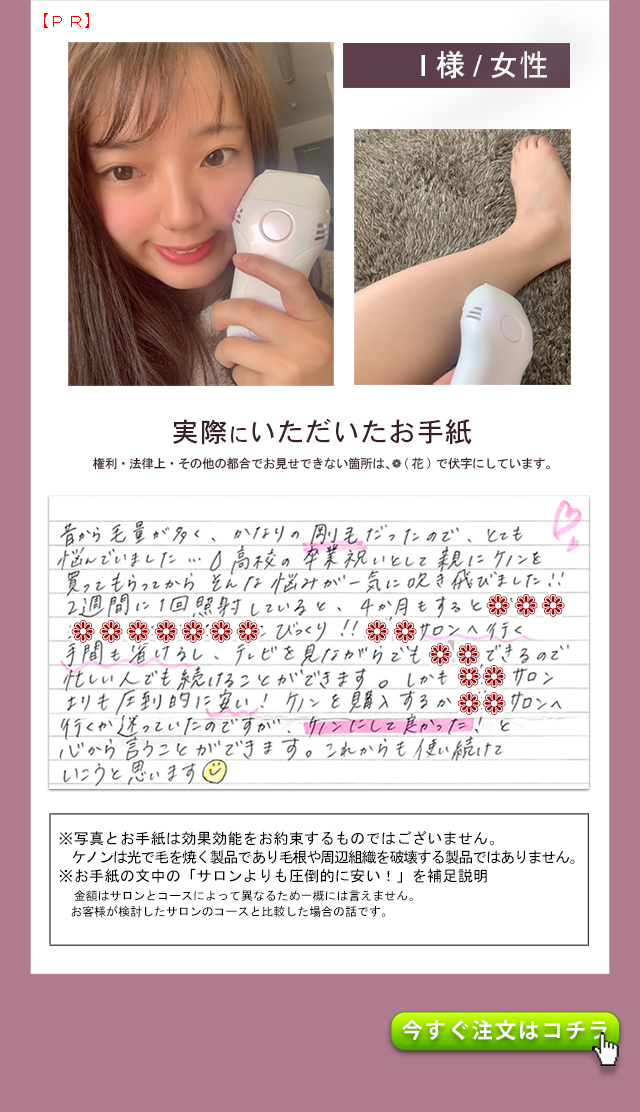 【ＰＲ】
I 様 / 女性
実際にいただいたお手紙
権利・法律上・その他の都合でお見せできない箇所は、❁ ( 花 ) で伏字にしています。
昔から毛量が多く、かなりの剛毛だったので、とても
悩んでいました…💧高校の卒業祝いとして親にケノンを
買ってもらってから そんな悩みが一気に吹き飛びました!!
2週間に1回照射していると、4か月もすると❁❁❁
❁❁❁❁❁❁❁ びっくり!! ❁❁サロンへ行く
手間も省けるし、テレビを見ながらでも❁❁できるので
忙しい人でも続けることができます。しかも❁❁サロン
よりも圧倒的に安い! ケノンを購入するか❁❁サロンへ
行くか迷っていたのですが、ケノンにして良かった! と
心から言うことができます。これからも使い続けて
いこうと思います
※写真とお手紙は効果効能をお約束するものではございません。
ケノンは光で毛を焼く製品であり毛根や周辺組織を破壊する製品ではありません。
※お手紙の文中の「サロンよりも圧倒的に安い！」を補足説明
金額はサロンとコースによって異なるため一概には言えません。
お客様が検討したサロンのコースと比較した場合の話です。
今すぐ注文はコチラ